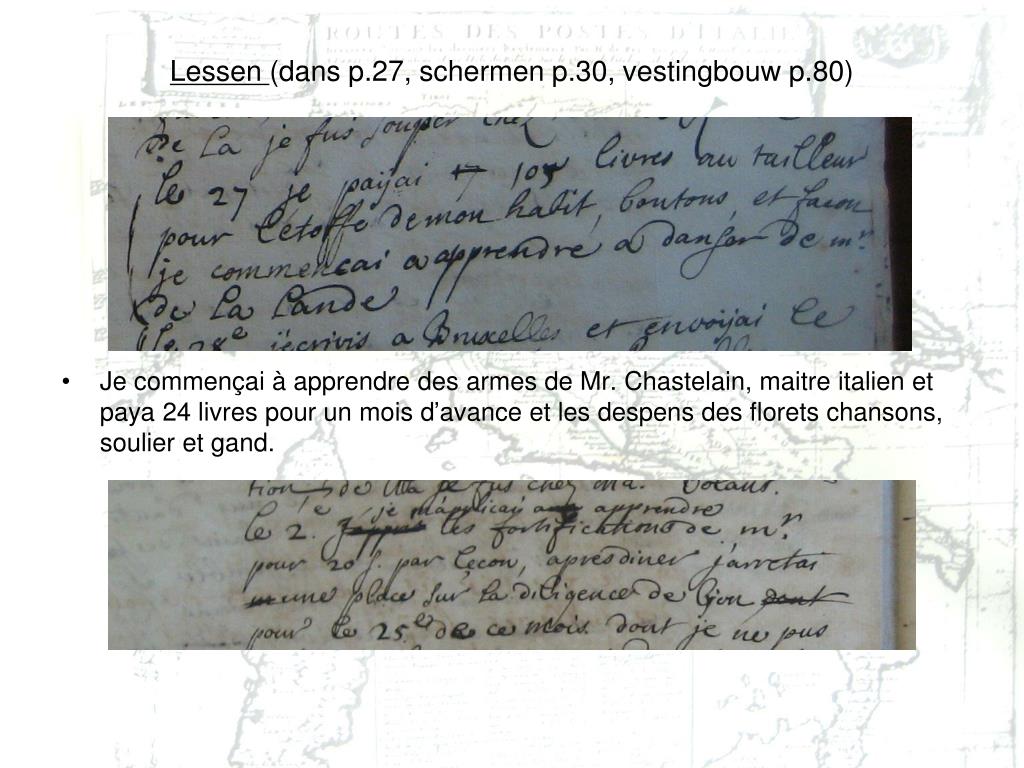 ROUTES DES POSTES D'ITALIE
Lessen (dans p.27, schermen p.30, vestingbouw p.80)
De La je fus souper chez
le 27 je payai 105 livres au tailleur
pour l'étoffe de mon habit, boutons, et facon
je commencai a apprendre a danser de mr.
de La Lande
Le 28e j'écrivis a Bruxelles et envoyai le
• Je commençai à apprendre des armes de Mr. Chastelain, maitre italien et
paya 24 livres pour un mois d’avance et les despens des florets chansons,
soulier et gand.
tion de la je fus chez ma.
je m'apliquai apprendre
le 2. les fortifications de mr.
pour 20 s. par leçon, apres diner j'arretai
une place sur la diligence de lyon dont
pour le 25 de ce mois dont je ne pus